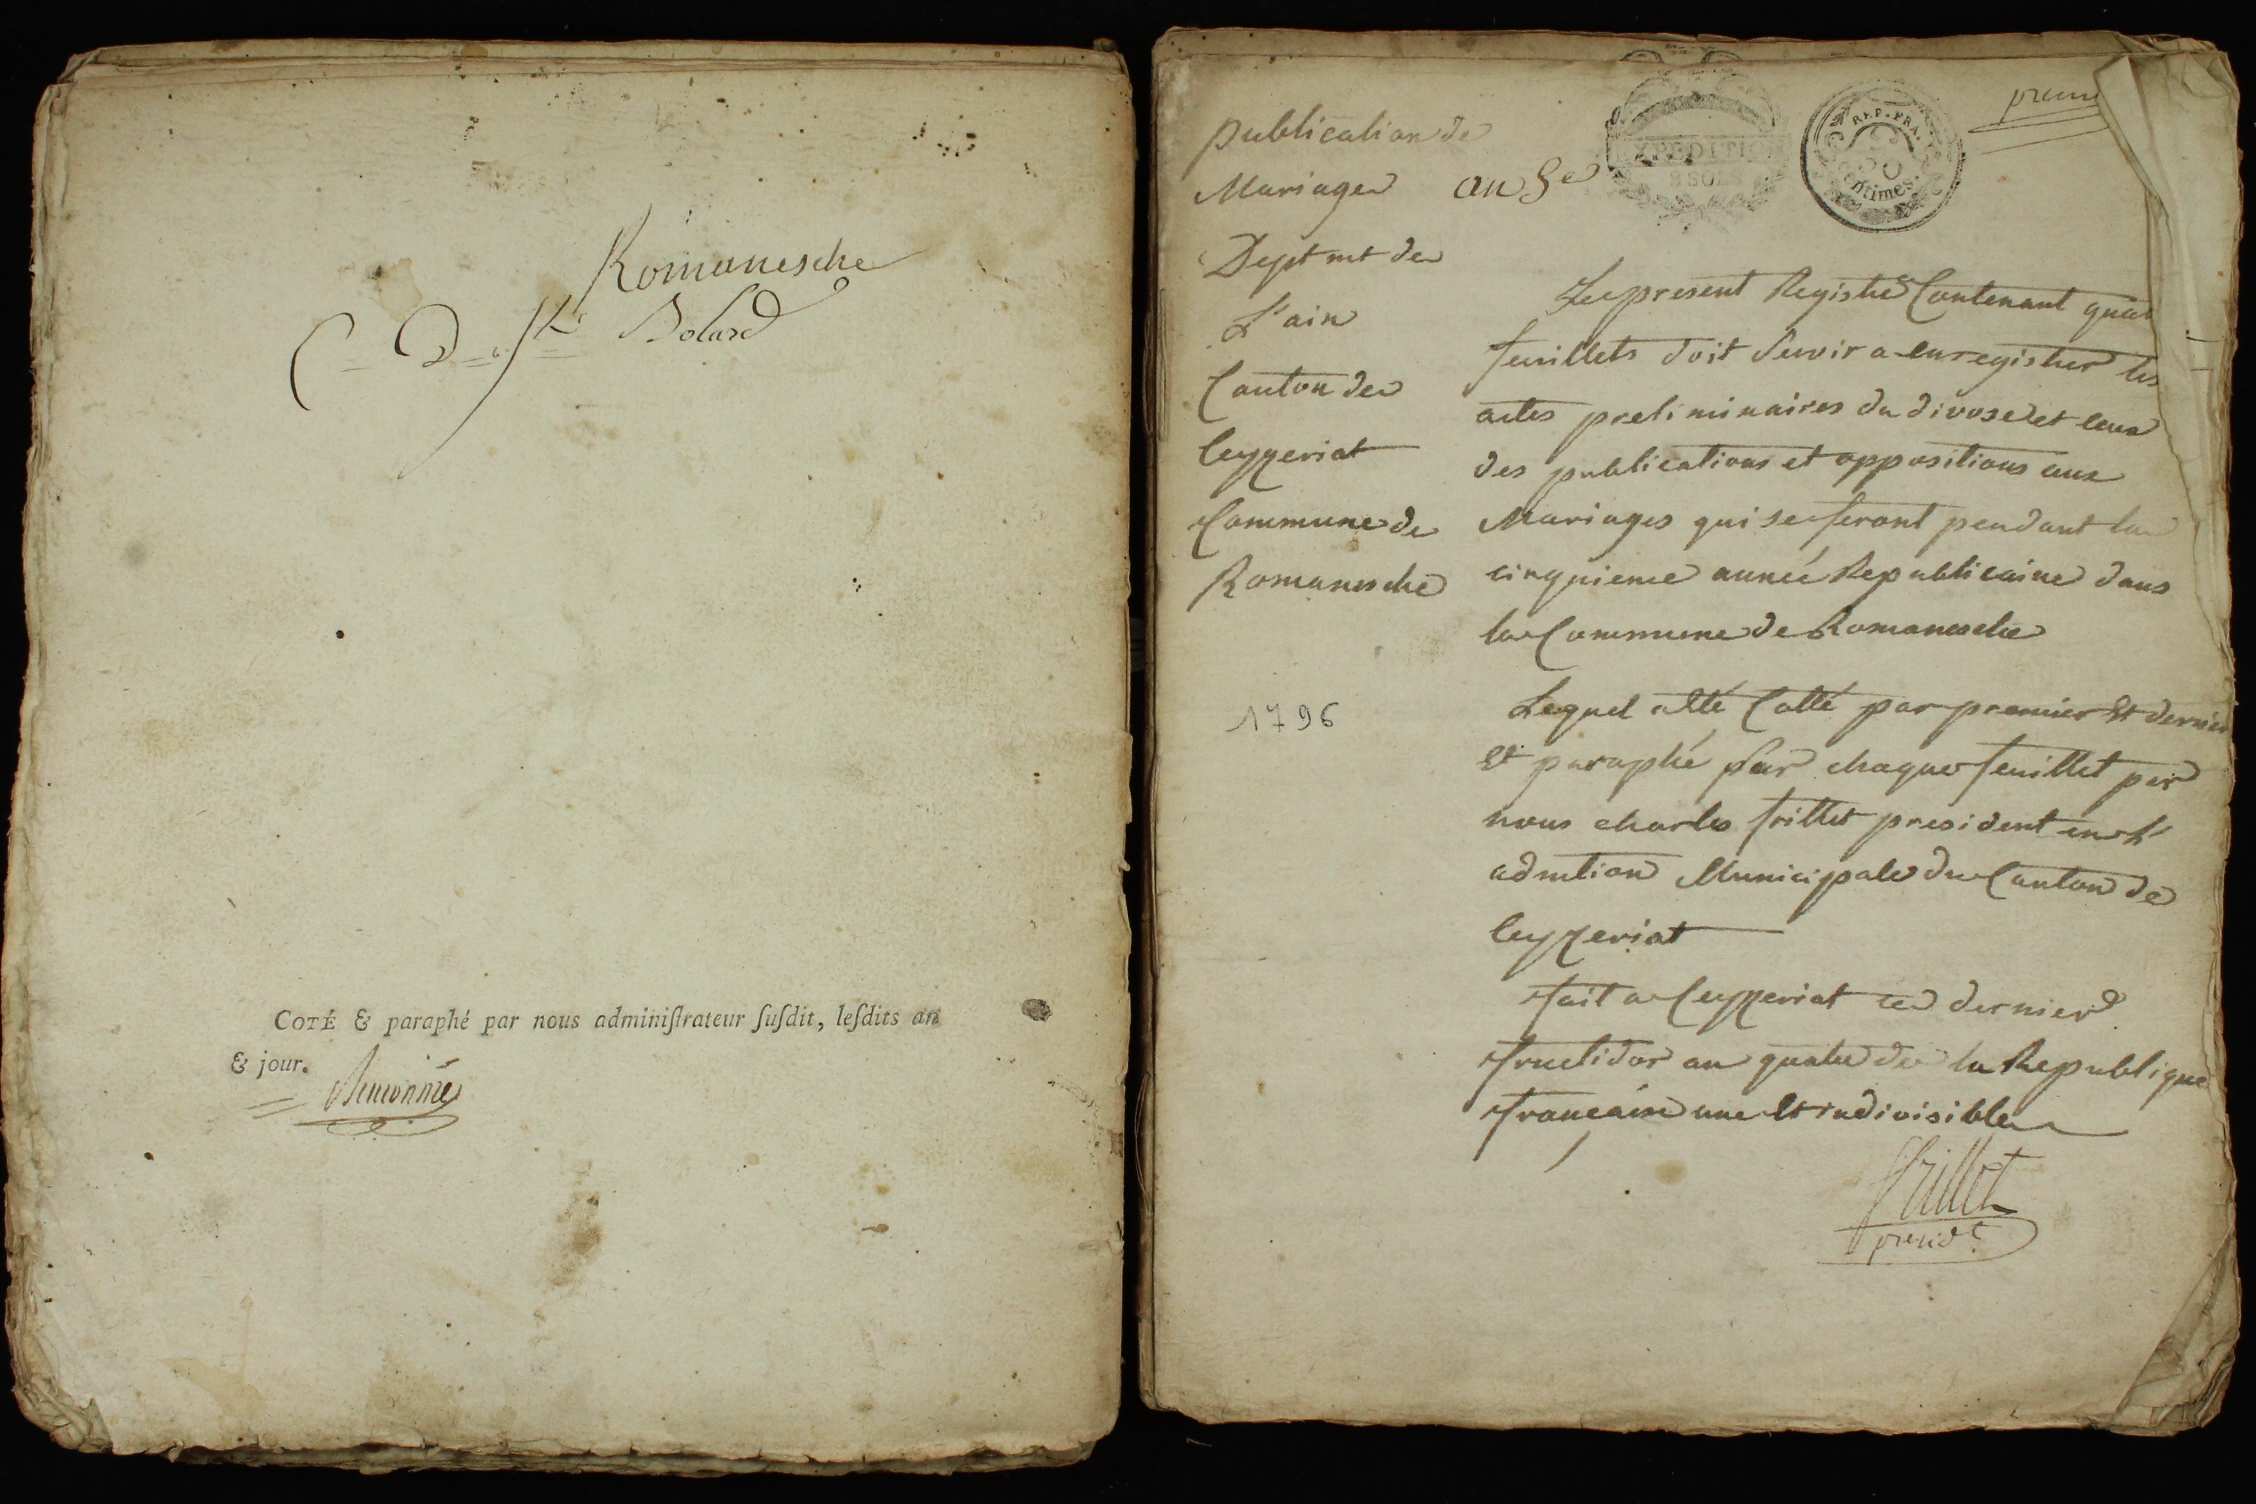 Romanesche
C - D - Bolard
COTÉ & paraphé par nous adminiſtrateur ſuſdit, leſdits an
& jour.
premi
publication de
Mariages an 5e
EXPEDITION
8 SOLS
REP. FRA.
Centimes.
Deptmt de
L'ain
Canton de
Ceyzeriat
Commune de
Romanesche
1796
Le present Registre Contenant quat
feuillets doit Servir a enregistrer les
actes preliminaires du divorse et ceux
des publications et oppositions aux
Mariages qui se feront pendant la
cinquieme année Republicaine dans
la Commune de Romanesche
Lequel a été Cotté par premier Et dernier
Et paraphé sur chaque feuillet par
nous charles frillet president en l'
admtion Municipale du Canton de
Ceyzeriat
fait a Ceyzeriat ce dernier
fructidor an quatre de la Republique
francaise une Et indivisible
frillet
presidt